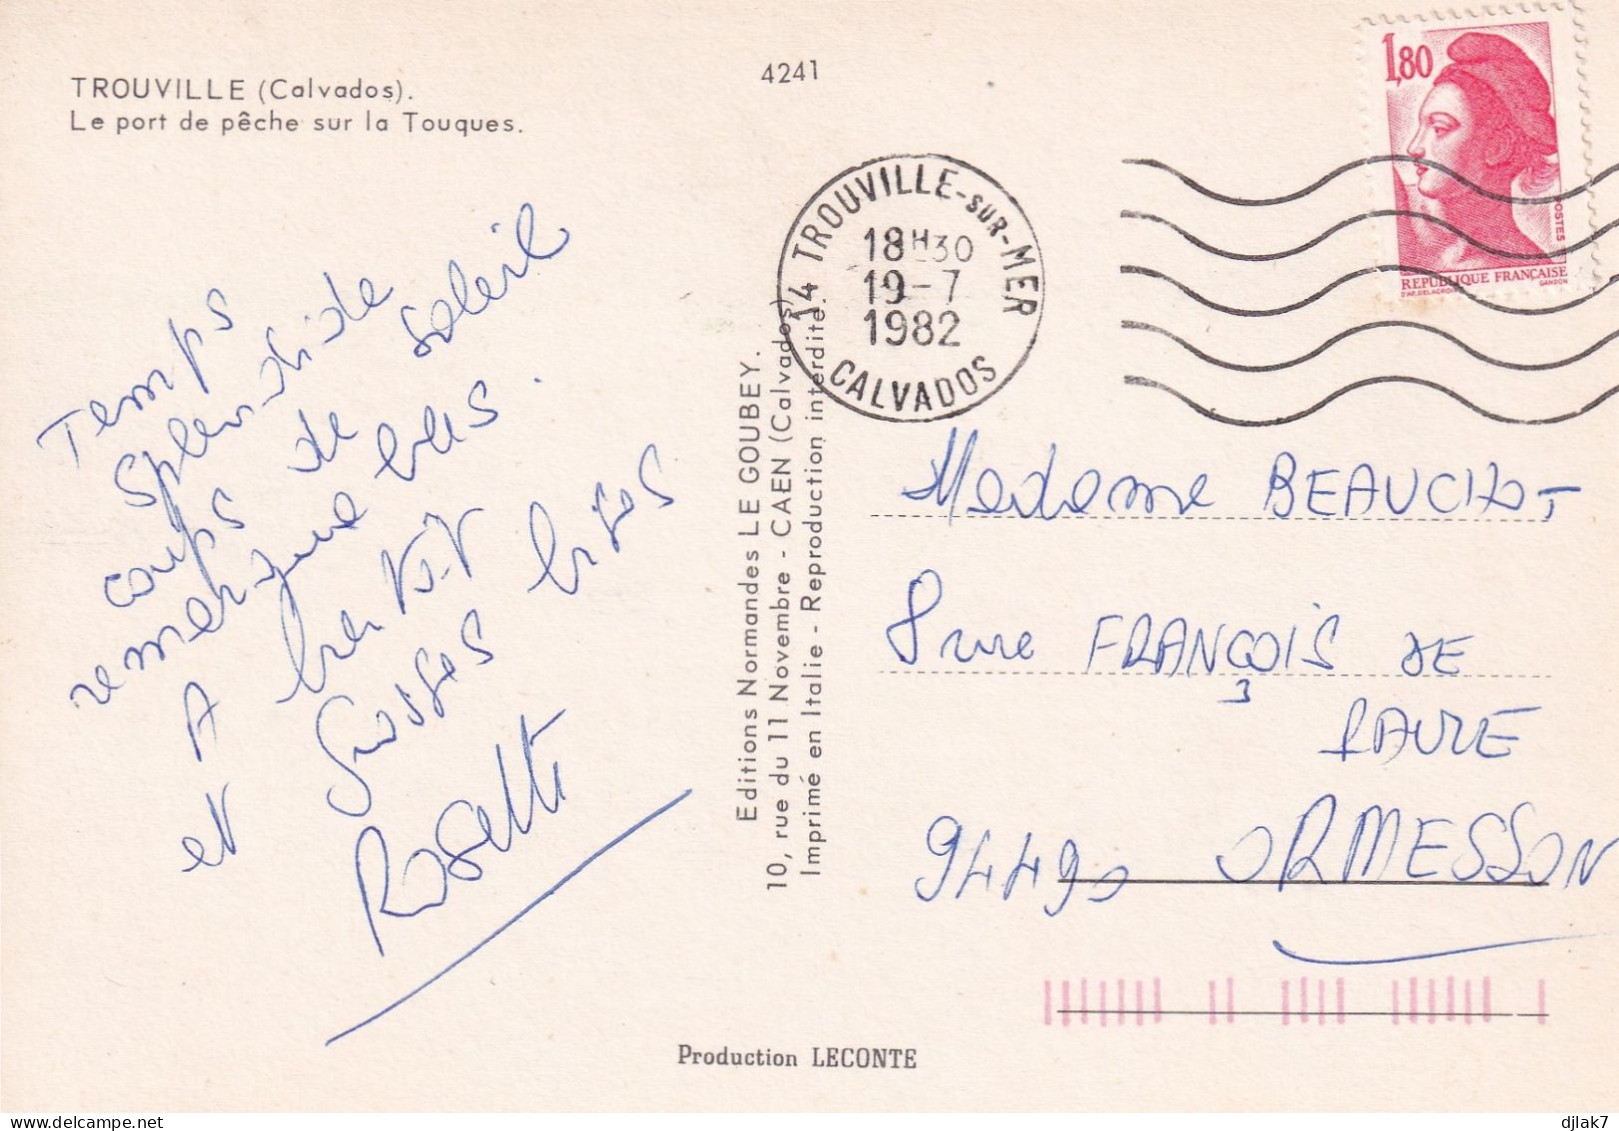 TROUVILLE (Calvados).
Le port de pêche sur la Touques.
4241
1,80
POSTES
REPUBLIQUE FRANÇAISE
D'AP. DELACROIX GANDON
14 TROUVILLE-SUR-MER
18H30
19-7
1982
CALVADOS
Temps
splendide
coups de soleil
remarquables.
A bientôt
et grosses bises
Rosette
Editions Normandes LE GOUBEY.
10, rue du 11 Novembre - CAEN (Calvados)
Imprimé en Italie - Reproduction interdite.
Madame BEAUCHOT
rue FRANÇOIS DE
FAURE
94490 ORMESSON
Production LECONTE
djlak7